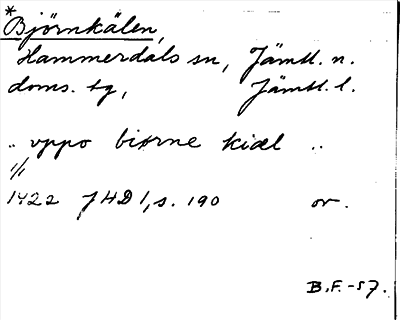 *
Björnkälen,
Hammerdals sn, Jämtl. n.
doms. tg, Jämtl. l.
.. vppo biørne kiæl ..
1/1
1422 JHD 1, s. 190 or.
B.F.-57.